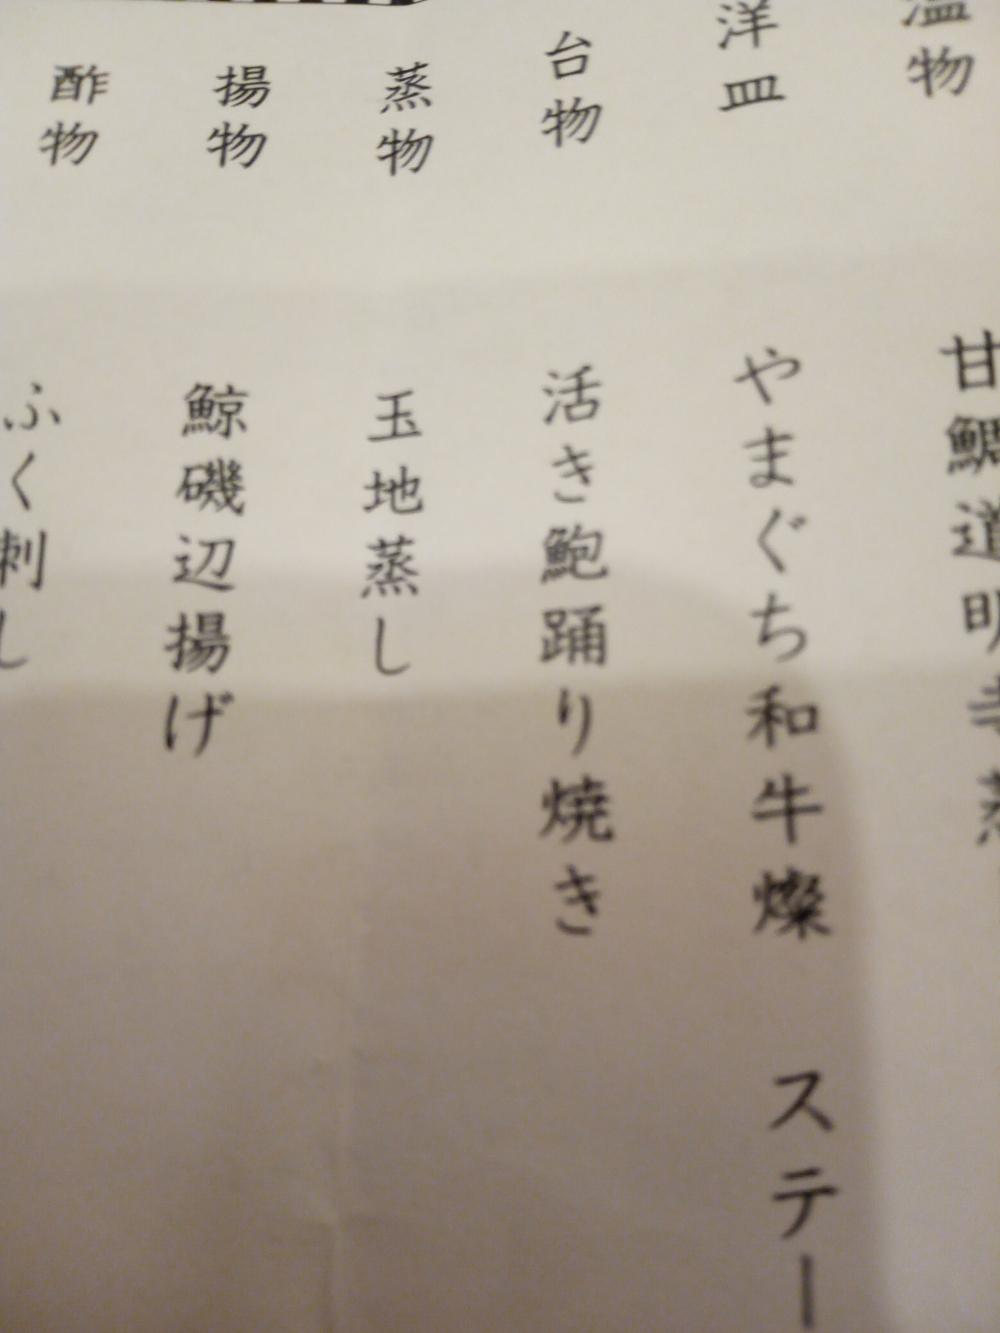 温物
甘鯛道明寺蒸
洋皿
やまぐち和牛燦 ステー
台物
活き鮑踊り焼き
蒸物
玉地蒸し
揚物
鯨磯辺揚げ
酢物
ふく刺し